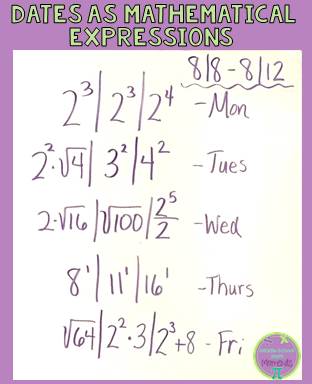 DATES AS MATHEMATICAL
EXPRESSIONS
8/8 - 8/12
2³ | 2³ | 2⁴ - Mon
2²·√4 | 3² | 4² - Tues
2·√16 | √100 | 2⁵/2 - Wed
8¹ | 11¹ | 16¹ - Thurs
√64 | 2²·3 | 2³+8 - Fri